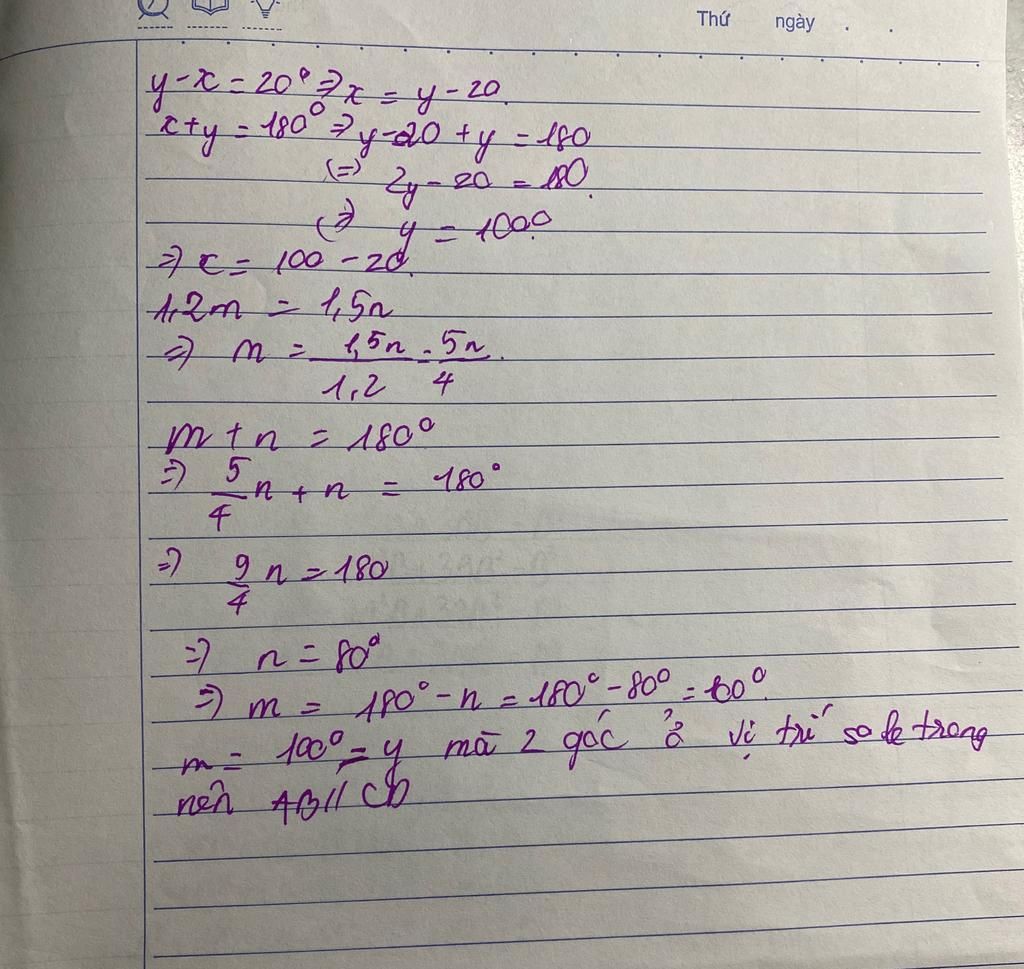 Thứ ngày . .
y-x = 20° => x = y - 20.
x+y = 180° => y-20 + y = 180
(=) 2y - 20 = 180.
(=) y = 100°
=> x = 100 - 20.
1,2m = 1,5n
=> m = 1,5n/1,2 = 5n/4.
m + n = 180°
=> 5/4 n + n = 180°
=> 9/4 n = 180
=> n = 80°
=> m = 180° - n = 180° - 80° = 100°.
m = 100° = y mà 2 góc ở vị trí so le trong
nên AB // CD